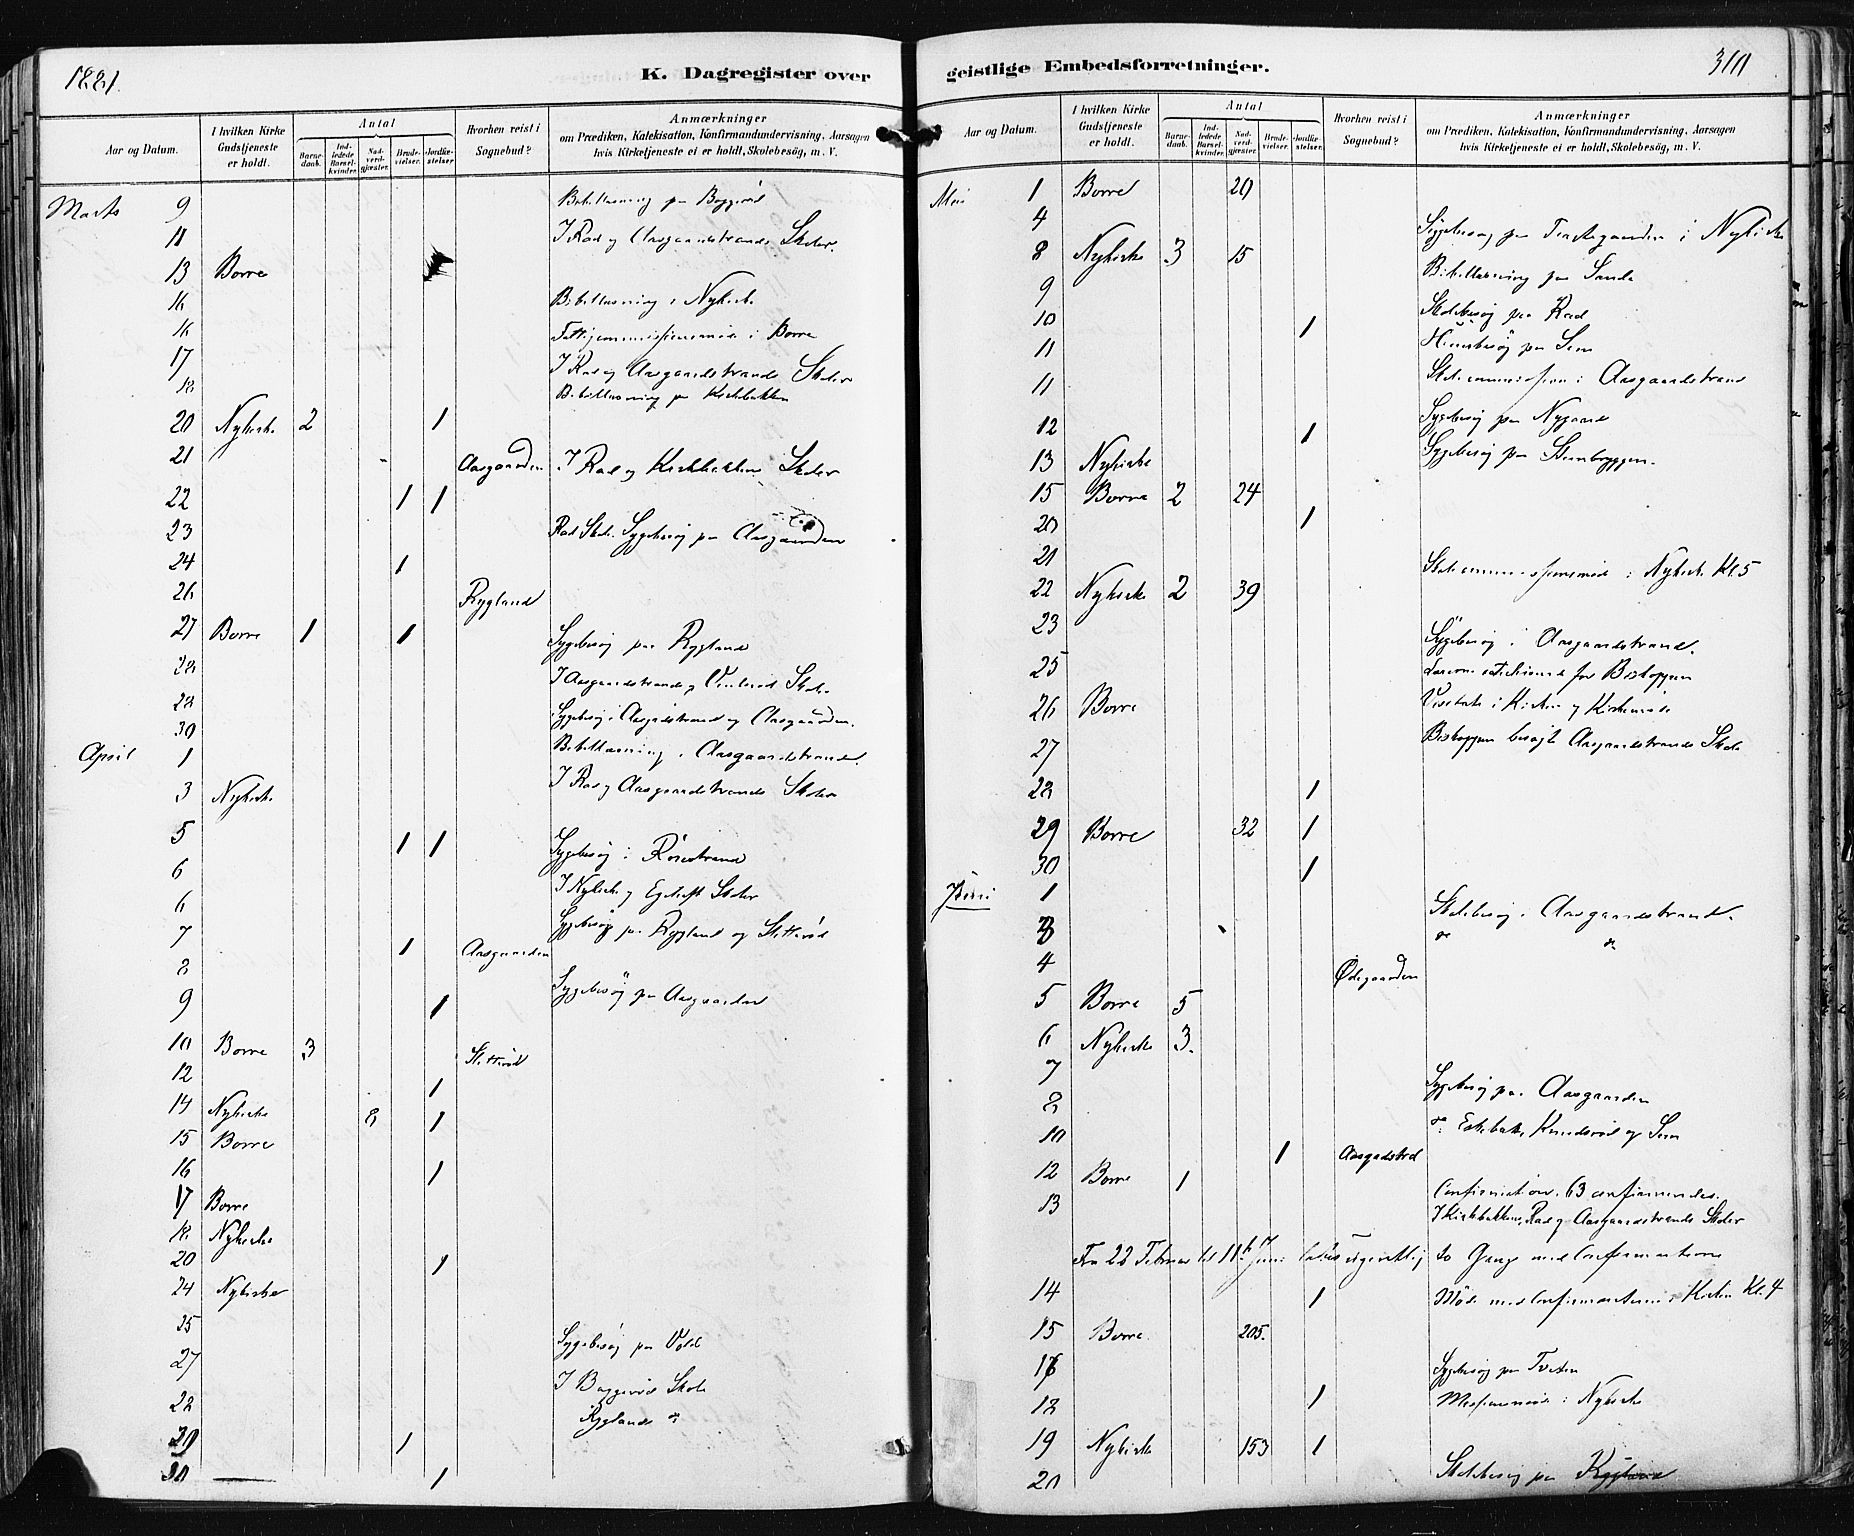 1881.
K. Dagregister over
Aar og Datum.
I hvilken Kirke Gudstjeneste er holdt.
Antal
Barnedaab.
Indledede Barselkvinder.
Nadverdgjester.
Brudevielser.
Jordfæstelser.
Hvorhen reist i Sognebud?
Anmærkninger
om Prædiken, Katekisation, Konfirmandundervisning, Aarsagen
hvis Kirketjeneste ei er holdt, Skolebesøg, m. V.
Marts 9 Bibellæsning paa Baggerød
11 I Rad og Aasgaardstrands Skoler.
13 Borre
16 Bibellæsning i Nykirke
16 Fattigcommissionsmøde i Borre
17 I Rad og Aasgaardstrands Skoler
18 Bibellæsning paa Kirkebakken
20 Nykirke 2 1
21 Aasgaarden I Rad og Kirkebakkens Skoler
22 1 1
23 Rad Skole. Sygebesøg paa Aasgaarden
24 1
26 Rygland
27 Borre 1 1 Sygebesøg paa Rygland
28 I Aasgaardstrand og Skole
28 Sygebesøg i Aasgaardstrand og Aasgaarden.
30 Bibellæsning i Aasgaardstrand.
April 1 I Rad og Aasgaardstrands Skoler
3 Nykirke
5 1 1 Sygebesøg i Rørestrand
6 I Nykirke og Skoler
6 Sygebesøg paa Rygland og Slitterød
7 1 Aasgaarden
8 Sygebesøg paa Aasgaarden
9 1
10 Borre 3 Slitterød
12 1
14 Nykirke 8 1
15 Borre
16 1
17 Borre
18 Nykirke
20 1
24 Nykirke
25 Sygebesøg paa Vold
27 I Baggerød Skole
28 Ryglands do
29 1
30 1
geistlige Embedsforretninger.
310
Aar og Datum.
I hvilken Kirke Gudstjeneste er holdt.
Antal
Barnedaab.
Indledede Barselkvinder.
Nadverdgjester.
Brudevielser.
Jordfæstelser.
Hvorhen reist i Sognebud?
Anmærkninger
om Prædiken, Katekisation, Konfirmandundervisning, Aarsagen
hvis Kirketjeneste ei er holdt, Skolebesøg, m. V.
Mai 1 Borre 20
4 Sygebesøg paa i Nykirke
8 Nykirke 3 15
9 Bibellæsning paa Sande
10 1 Skolebesøg paa Rad
11 Huusbesøg paa Sem
11 Skolecommission i Aasgaardstrand
12 1 Sygebesøg paa Nygaard
13 Nykirke Sygebesøg paa Steinbryggen.
15 Borre 2 24
20 1
21 Skolecommissionsmøde i Nykirke Kl. 5
22 Nykirke 2 39
23 Sygebesøg i Aasgaardstrand.
25 for Biskoppen
26 Borre Visitats i Kirken og Kirkemøde
27 Biskoppen besøgte Aasgaardstrands Skole
28 1
29 Borre 32 1
30 1
Juni 1 Skolebesøg i Aasgaardstrand.
3 do do
4 Ødegaarden
5 Borre 5
6 Nykirke 3.
7 Sygebesøg paa Aasgaarden
8 do. Knudsrød og Sem
10 1 Aasgadstrd
12 Borre 1 Confirmation. 63 confirmeredes.
13 I Kirkebakkens, Rad og Aasgaardstrands Skoler
Fra 22 Februar til 11te Juni ugentlig to Gange med Confirmanterne
14 1 Møde med Confirmanterne i Kirken Kl. 4
15 Borre 205.
16 Sygebesøg paa Tveten
18 1 Missionsmøde i Nykirke
19 Nykirke 153 1
20 Skolebesøg paa Rygland